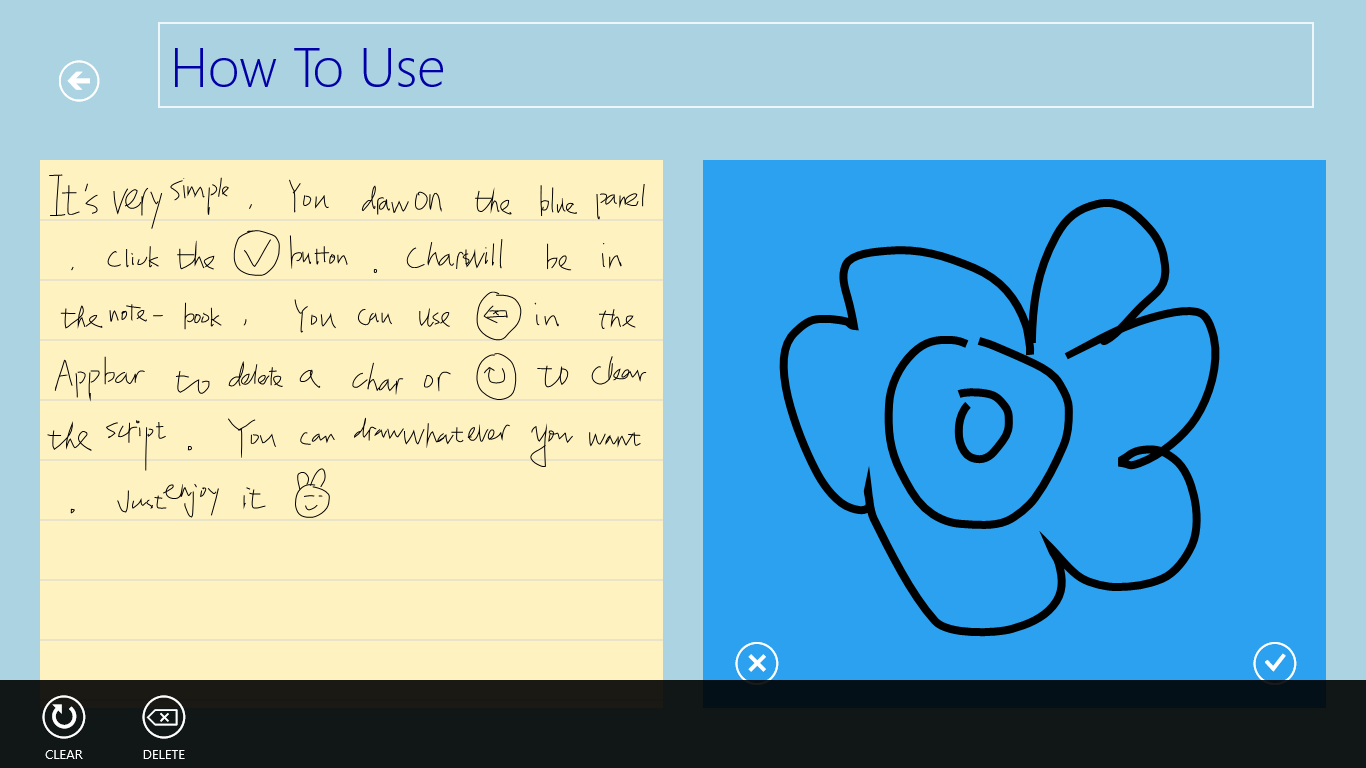 How To Use
It's very simple. You draw on the blue panel
. Click the button. Char will be in
the note-book. You can use in the
Appbar to delete a char or to clear
the script. You can draw whatever you want
. Just enjoy it
CLEAR DELETE